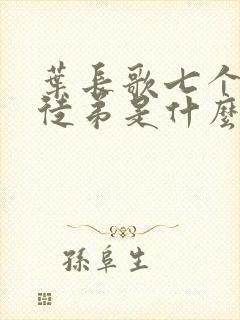 葉長歌七个
徒弟是什麼
孫阜生